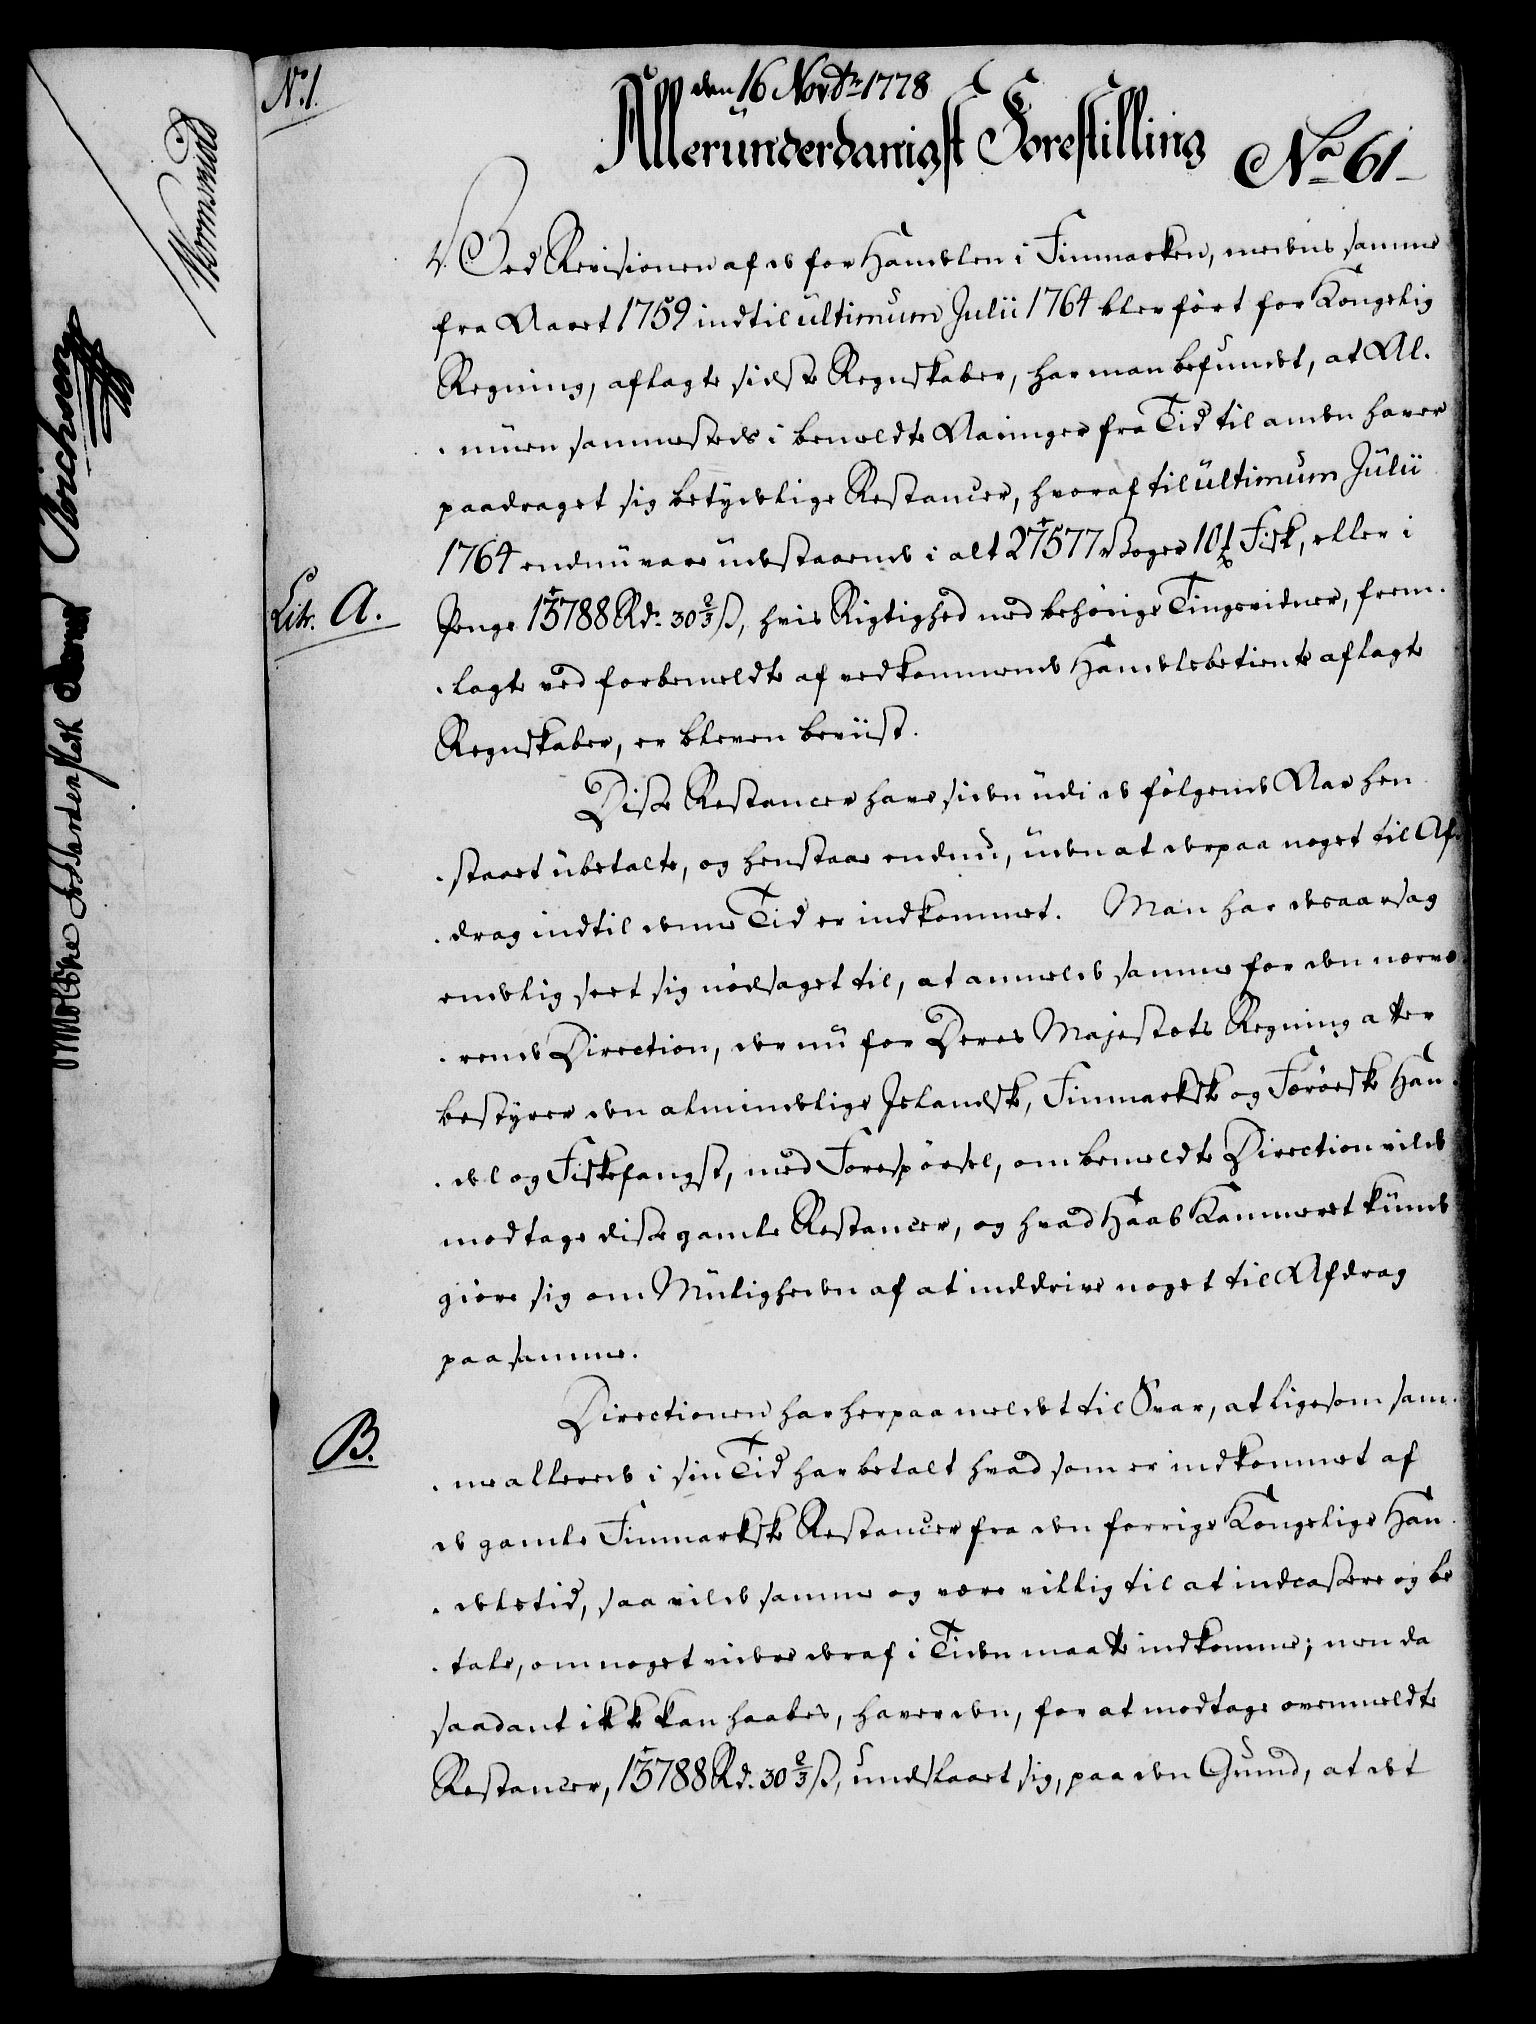 No. 1.
den 16 Novbr: 1778
Allerunderdanigst Forestilling
No 61
Ved Revisionen af de for Handelen i Finmarken, medens samme
fra Aaret 1759 indtil ultimum Julii 1764 blev ført for Kongelig
Regning, aflagte sidste Regnskaber, har man befundet, at Al-
-muen sammesteds i bemeldte Aaringer fra Tid til anden haver
paadraget sig betydelige Restancer, hvoraf til ultimum Julii
1764 endnu vare udestaaende i alt 27577 Voger 10 ℔ Fisk, eller i
Litr. A.
Penge 13788 Rd. 30 2/3 ß, hvis Rigtighed med behørige Tingsvidner, frem-
-lagte ved forbemeldte af vedkommende Handelsbetiente aflagte
Regnskaber, er bleven beviist.
Disse Restancer have siden udi de følgende Aar hen-
-staaet ubetalte, og henstaae endnu, uden at derpaa noget til Af-
-drag indtil denne Tid er indkommet. Man har desaarsag
endelig seet sig nødsaget til, at anmelde samme for den nærvæ-
-rende Direction, der nu for Deres Majestæts Regning atter
bestyrer den almindelige Islandske, Finmarkske og Færøeske Han-
-del og Fiskefangst, med Forespørsel, om bemeldte Direction vilde
modtage disse gamle Restancer, og hvad Haab Kammeret kunde
giøre sig om Muligheden af at inddrive noget til Afdrag
paa samme.
Directionen har herpaa meldet til Svar, at ligesom sam-
B.
-me allerede i sin Tid har betalt hvad som er indkommet af
de gamle Finmarkske Restancer fra den forrige Kongelige Han-
-delstid, saa vilde samme og være villig til at indcassere og be-
-tale, om noget videre deraf i Tiden maatte indkomme; men da
saadant ikke kan haabes, haver den, for at modtage ovenmeldte
Restancer, 13788 Rd. 30 2/3 ß, undslaaet sig, paa den Grund, at det
Wormskiold
Erichsen